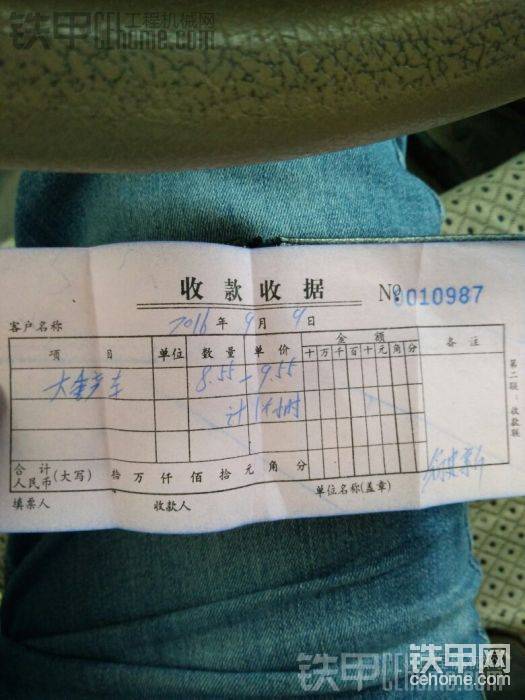 铁甲工程机械网
cehome.com
收款收据 № 0010987
客户名称 2016年9月9日
项目 单位 数量 单价 金额 备注
十万千百十元角分
8.55-9.55
计1小时
合计人民币(大写) 拾万仟佰拾元角分
填票人 收款人 单位名称(盖章)
第二联：收款联
铁甲网
cehome.com